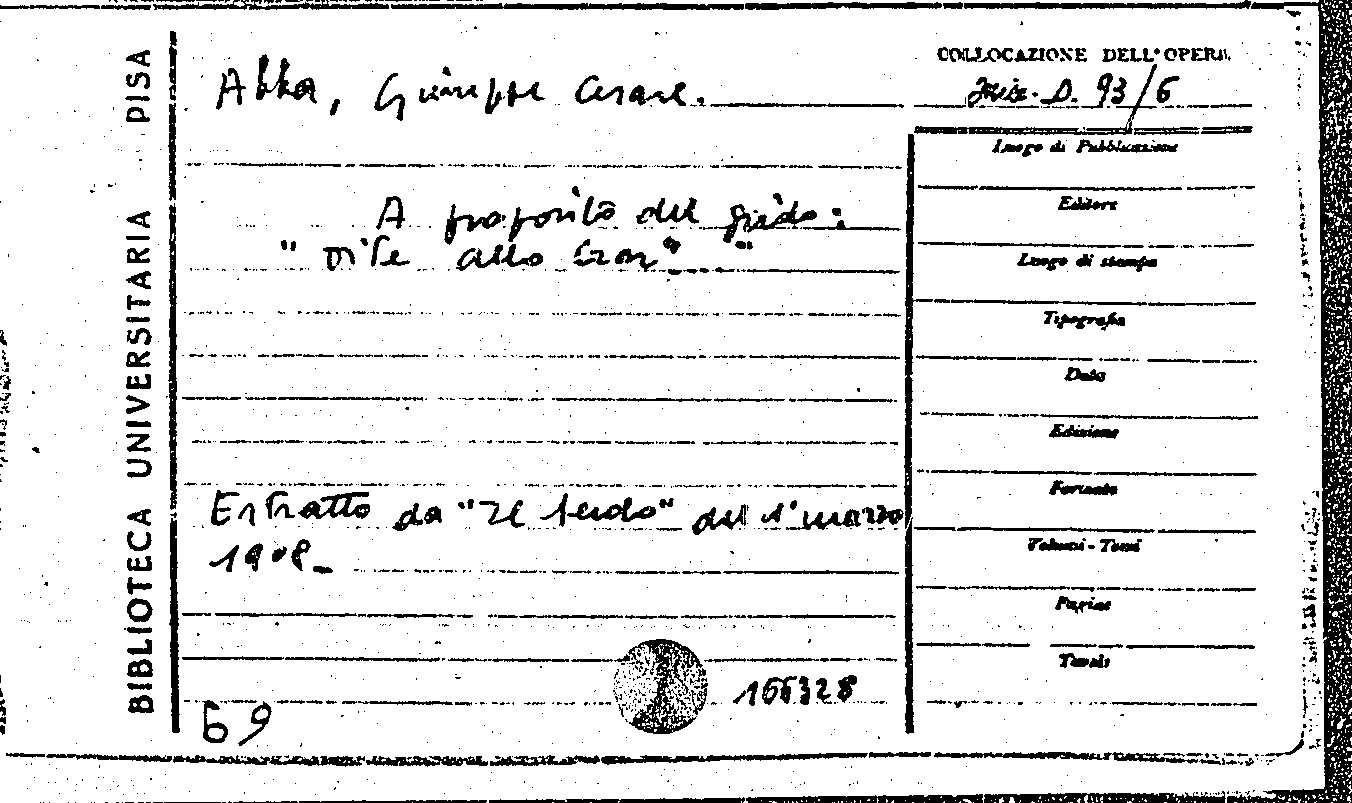 BIBLIOTECA UNIVERSITARIA PISA
Abba, Giuseppe Cesare.
A proposito del grido:
"Dite allo Czar"
Estratto da "Il" del 1° marzo
1908.
69
166328
COLLOCAZIONE DELL'OPERA
D. 93/6
Luogo di Pubblicazione
Editore
Luogo di stampa
Tipografia
Data
Edizione
Formato
Volumi - Tomi
Pagine
Tavole